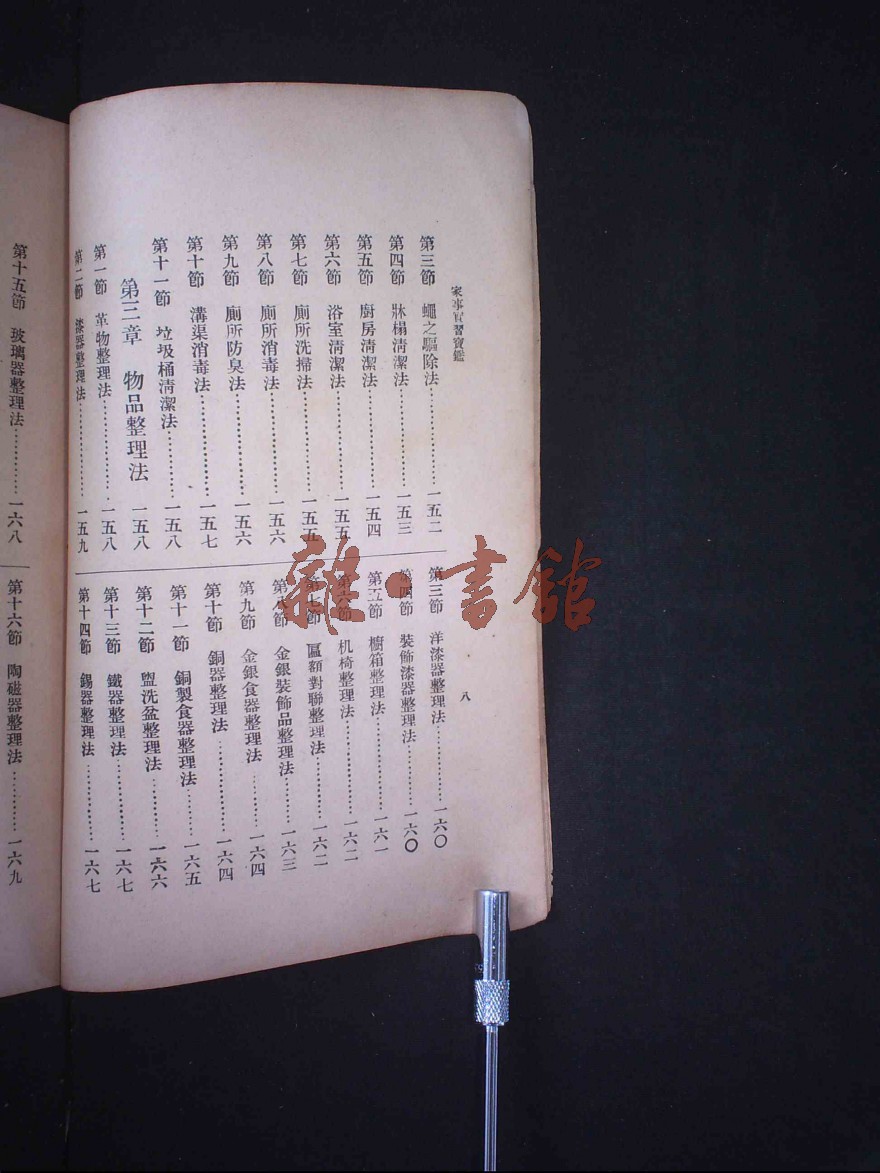 家事實習寶鑑
第三節　蠅之驅除法…………一五二
第四節　牀榻清潔法…………一五三
第五節　廚房清潔法…………一五四
第六節　浴室清潔法…………一五五
第七節　廁所洗掃法…………一五五
第八節　廁所消毒法…………一五六
第九節　廁所防臭法…………一五六
第十節　溝渠消毒法…………一五七
第十一節　垃圾桶清潔法…………一五八
第三章　物品整理法　一五八
第一節　革物整理法…………一五八
第二節　漆器整理法…………一五九
第三節　洋漆器整理法…………一六〇
第四節　裝飾漆器整理法…………一六〇
第五節　櫥箱整理法…………一六一
第六節　机椅整理法…………一六二
第七節　匾額對聯整理法…………一六二
第八節　金銀裝飾品整理法…………一六三
第九節　金銀食器整理法…………一六四
第十節　銅器整理法…………一六四
第十一節　銅製食器整理法…………一六五
第十二節　盥洗盆整理法…………一六六
第十三節　鐵器整理法…………一六七
第十四節　錫器整理法…………一六七
八
第十五節　玻璃器整理法…………一六八
第十六節　陶磁器整理法…………一六九
雜·書館